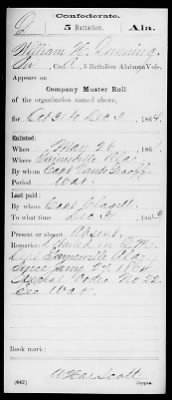 D
Confederate.
5 Battalion.
Ala.
William H.
Co. A, 5 Battalion Alabama Vols.
Appears on
Company Muster Roll
of the organization named above,
for Oct 31 to Dec 31, 1864.
Enlisted:
When May 26, 1861.
Where Gainesville Ala.
By whom Capt
Period War
Last paid:
By whom Capt
To what time Dec 31, 1863
Present or absent Absent
Remarks: Detailed in Q.M.
Dept Gainesville Ala
Since Jany 27 1864
Special Order No 22
Sec War
Book mark:
Scott
(642)
Copyist.